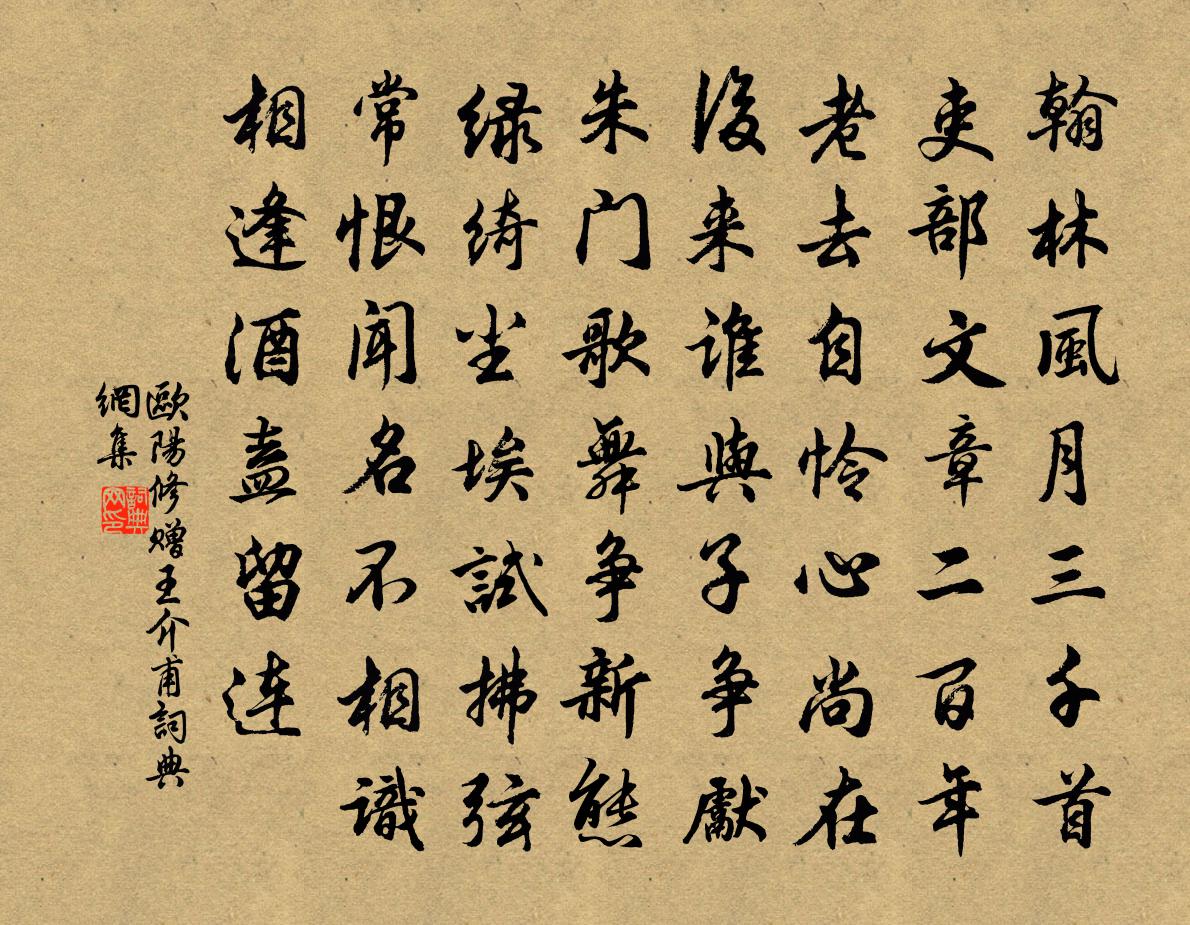 翰林風月三千首
吏部文章二百年
老去自怜心尚在
後来誰與子争獻
朱门歌舞争新態
绿绮尘埃試拂弦
常恨闻名不相識
相逢酒盍留连
歐陽修贈王介甫詞典
網集
詞典
网印